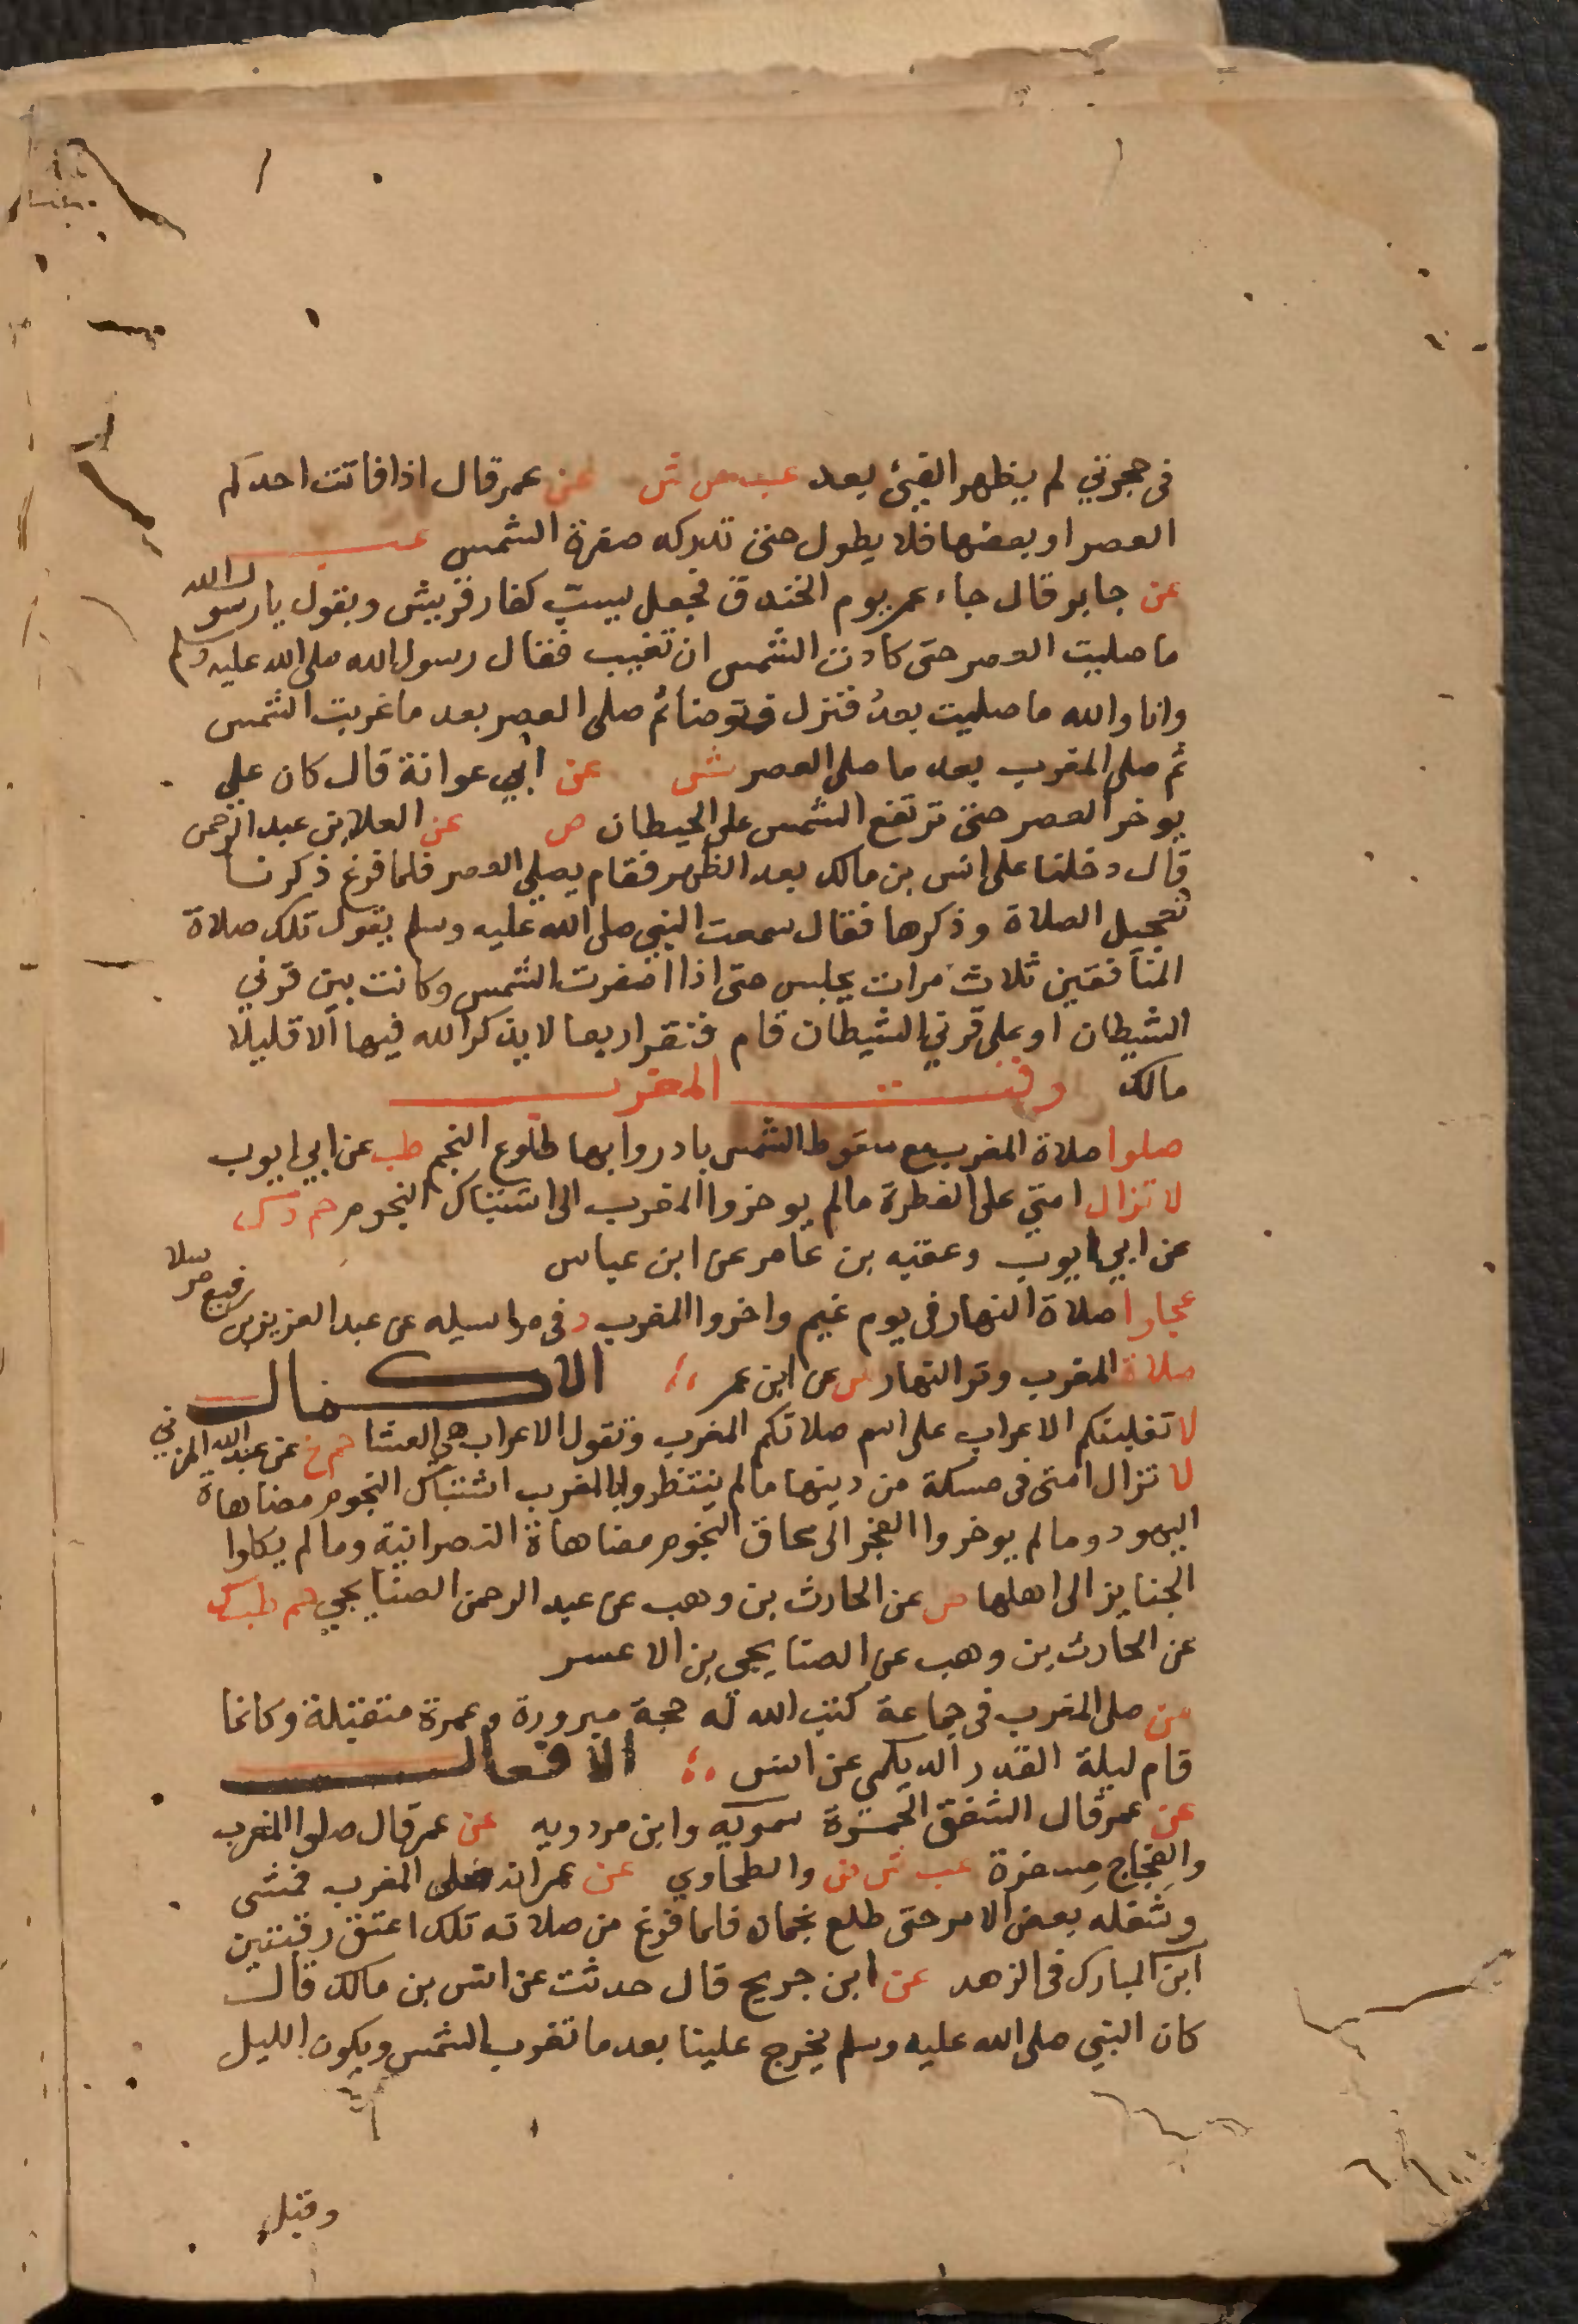 في حجرتي لم يظهر الفيئ بعد عب ص ش عن عمر قال اذا فاتت احدكم
العصر او بعضها فلا يطول حتى تدركه صفرة الشمس عب
عن جابر قال جاء عمر يوم الخندق فجعل يسبّ كفار قريش ويقول يا رسول الله
ما صليت العصر حتى كادت الشمس ان تغيب فقال رسول الله صلى الله عليه وسلم
وانا والله ما صليت بعدُ فنزل فتوضأ ثم صلى العصر بعد ما غربت الشمس
ثم صلى المغرب بعد ما صلى العصر ش عن ابي عوانة قال كان علي
يوخر العصر حتى ترتفع الشمس على الحيطان ص عن العلا بن عبد الرحمن
قال دخلنا على انس بن مالك بعد الظهر فقام يصلي العصر فلما فرغ ذكرنا
تعجيل الصلاة وذكرها فقال سمعت النبي صلى الله عليه وسلم يقول تلك صلاة
المنافقين ثلاث مرات يجلس حتى اذا اصفرت الشمس وكانت بين قرني
الشيطان او على قرني الشيطان قام فنقر اربعا لا يذكر الله فيها الا قليلا
مالك وقت المغرب
صلوا صلاة المغرب مع سقوط الشمس بادروا بها طلوع النجم طب عن ابي ايوب
لا تزال امتي على الفطرة ما لم يوخروا المغرب الى اشتباك النجوم حم د ك
عن ابي ايوب وعقبه بن عامر عن ابن عباس
عجلوا صلاة النهار في يوم غيم واخروا المغرب د في مراسيله عن عبد العزيز بن رفيع مرسلا
صلاة المغرب وتر النهار ش عن ابن عمر الاكمال
لا تغلبنكم الاعراب على اسم صلاتكم المغرب وتقول الاعراب هي العشا حم خ عن عبد الله المزني
لا تزال امتى في مسكة من دينها ما لم ينتظروا بالمغرب اشتباك النجوم مضاهاة
اليهود وما لم يوخروا الفجر الى محاق النجوم مضاهاة النصرانية وما لم يكلوا
الجنايز الى اهلها ص عن الحارث بن وهب عن عبد الرحمن الصنابحي حم طب ك
عن الحارث بن وهب عن الصنابحي بن الاعسر
من صلى المغرب في جماعة كتب الله له حجة مبرورة وعمرة متقبلة وكانما
قام ليلة القدر الديلمي عن انس الافعال
عن عمر قال الشفق الحمرة سمويه وابن مردويه عن عمر قال صلوا المغرب
والفجاج مسفرة عب ش ص والطحاوي عن عمر انه صلى المغرب فمشى
وشغله بعض الامر حتى طلع نجمان فلما فرغ من صلاته تلك اعتق رقبتين
ابن المبارك في الزهد عن ابن جريج قال حدثت عن انس بن مالك قال
كان النبي صلى الله عليه وسلم يخرج علينا بعد ما تغرب الشمس ويكون الليل
وقبل